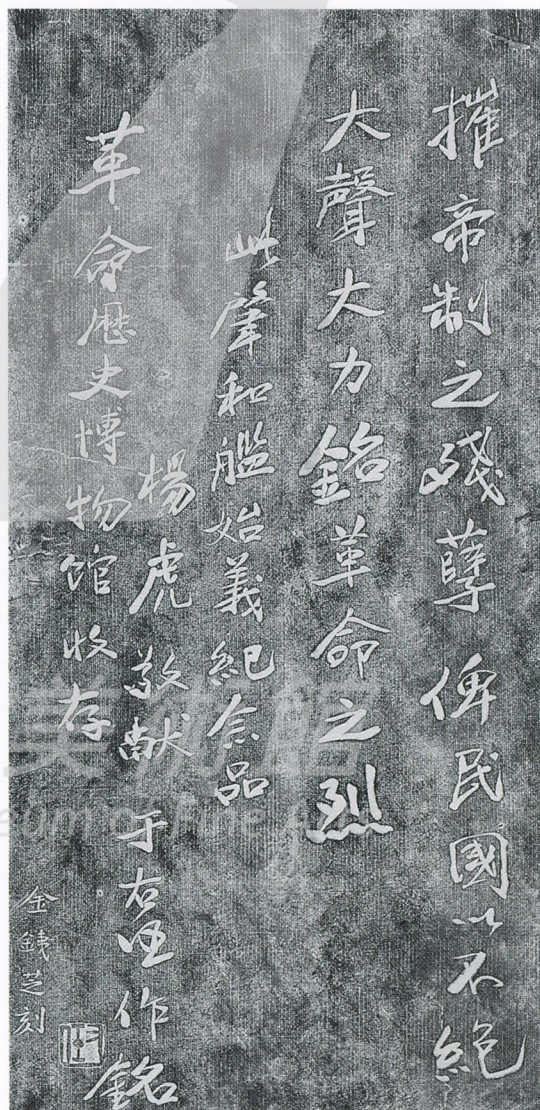 摧帝制之殘孽俾民國以不絕
大聲大力銘革命之烈
此肇和艦始義紀念品
楊虎敬献 于右任作銘
革命歷史博物馆收存
金銕芝刻